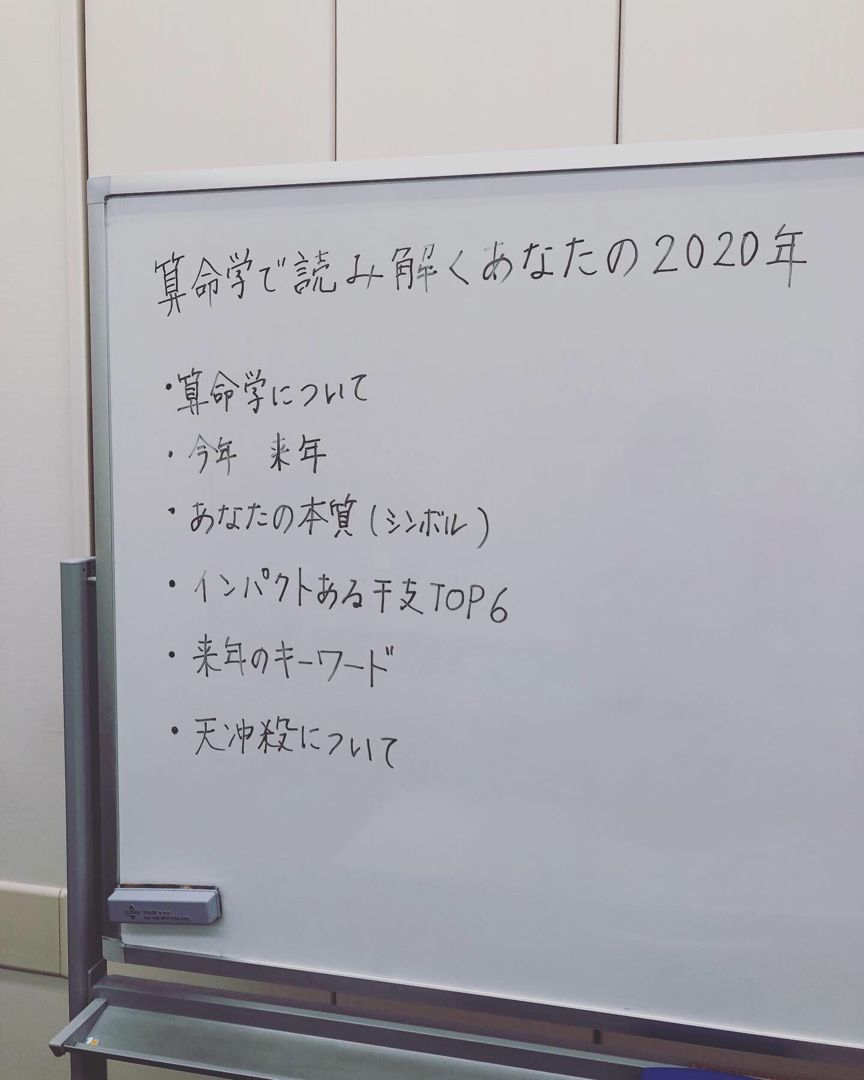 算命学で読み解くあなたの2020年
・算命学について
・今年 来年
・あなたの本質(シンボル)
・インパクトある干支TOP6
・来年のキーワード
・天冲殺について